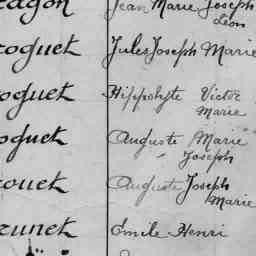 Jean Marie Joseph
Léon
coquet Jules Joseph Marie
oquet Hippolyte Victor
Marie
oquet Auguste Marie
Joseph
rouet Auguste Joseph
Marie
runet Emile Henri